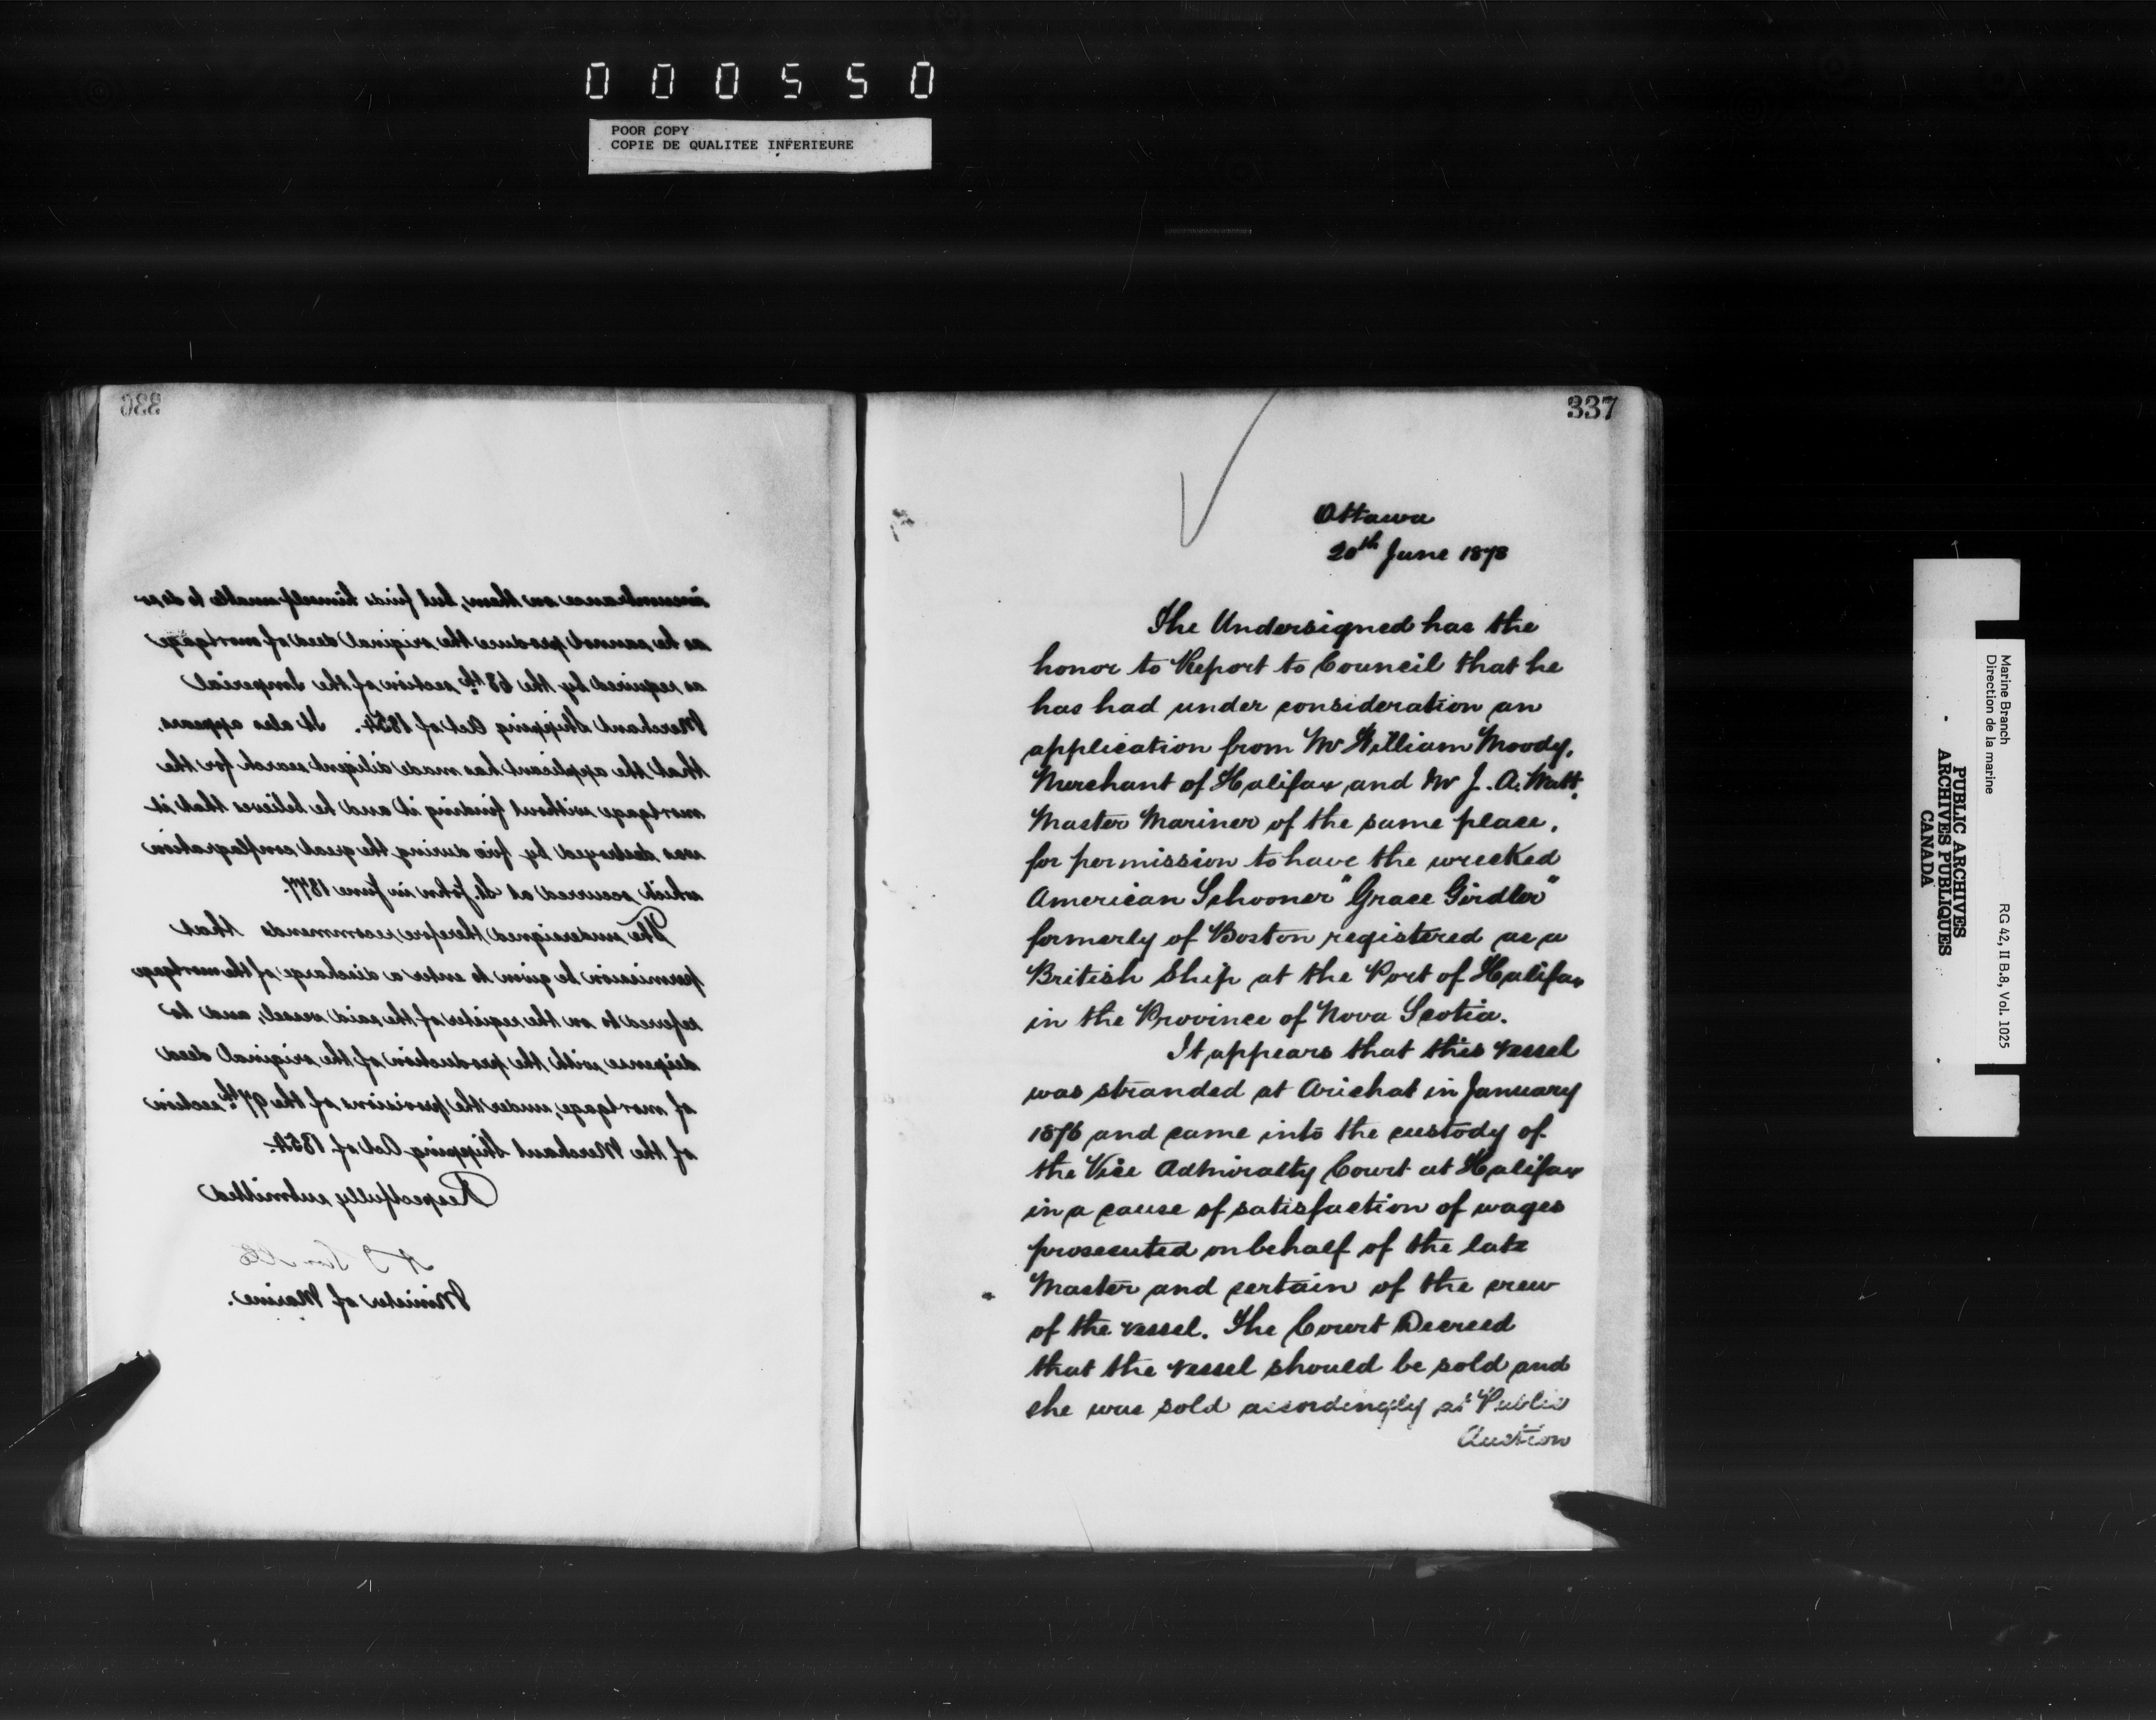 000550
POOR COPY
COPIE DE QUALITEE INFERIEURE
336
incumbrance on them, but finds himself unable to do so
as he cannot produce the original deed of mortgage
as required by the 68th section of the Imperial
Merchant Shipping Act of 1854. It also appears,
that the applicant has made diligent search for the
mortgage without finding it and he believes that it
was destroyed by fire during the great conflagration
which occurred at St. John in June 1877.
The undersigned therefore recommends that
permission be given to enter a discharge of the mortgage
referred to on the register of the said vessel, and to
dispense with the production of the original deed
of mortgage, under the provisions of the 97th section
of the Merchant Shipping Act of 1854.
Respectfully submitted
Minister of Marine.
337
Ottawa
20th June 1878
The Undersigned has the
honor to Report to Council that he
has had under consideration an
application from Mr William Moody,
Merchant of Halifax and Mr J. A. Watt,
Master Mariner of the same place,
for permission to have the wrecked
American Schooner "Grace Girdler"
formerly of Boston registered as a
British Ship at the Port of Halifax
in the Province of Nova Scotia.
It appears that this vessel
was stranded at Arichat in January
1876 and came into the custody of
the Vice Admiralty Court at Halifax
in a cause of satisfaction of wages
prosecuted on behalf of the late
Master and certain of the crew
of the vessel. The Court Decreed
that the vessel should be sold and
she was sold accordingly at Public
Auction
Marine Branch
Direction de la marine
RG 42, II B.8, Vol. 1025
PUBLIC ARCHIVES
ARCHIVES PUBLIQUES
CANADA